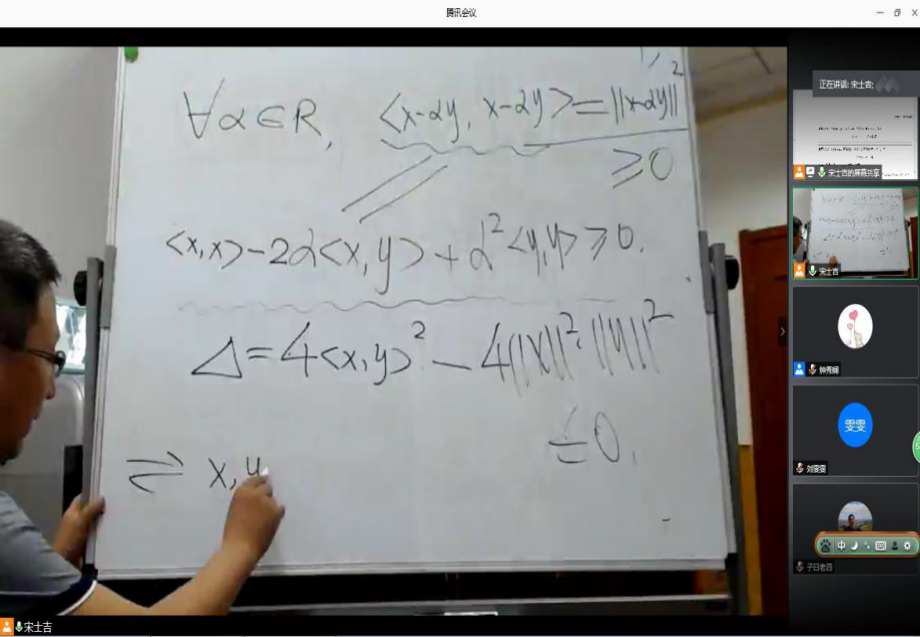 腾讯会议
∀α∈R, <x-αy, x-αy>=||x-αy||²
≥0
<x,x>-2α<x,y>+α²<y,y>≥0.
Δ=4<x,y>²-4||x||²·||y||²
≤0.
⇌ x,y
正在讲话: 宋士吉;
宋士吉的屏幕共享
宋士吉
钟秀娴
雯雯
刘雯雯
中
子曰老四
宋士吉